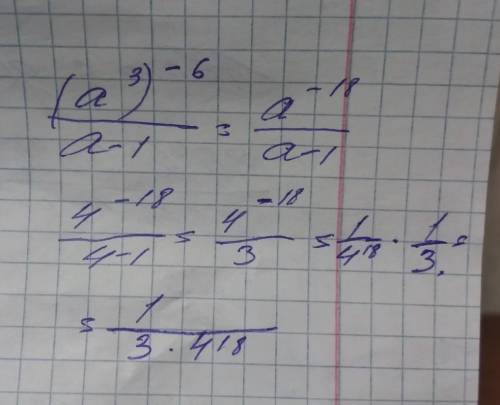 (a³)⁻⁶/a-1 = a⁻¹⁸/a-1
4⁻¹⁸/4-1 = 4⁻¹⁸/3 = 1/4¹⁸ · 1/3 =
= 1/3 · 4¹⁸